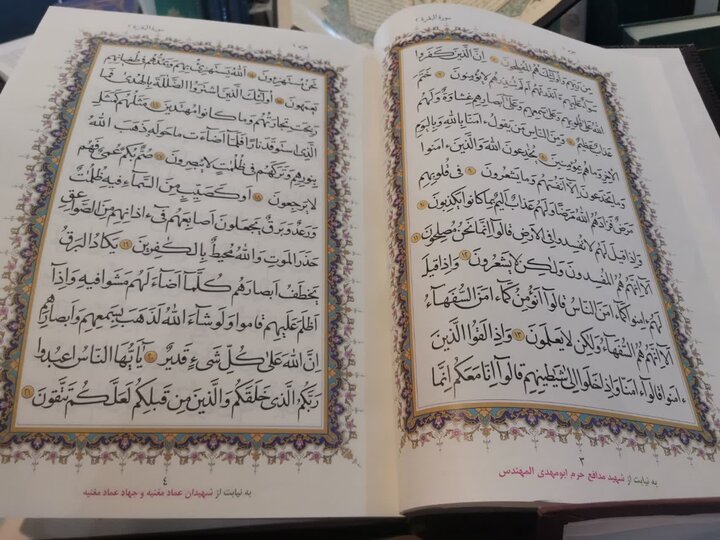 سورة البقرة ٢
جزء ١
مِن رَبِّهِم وَاُولٰئِكَ هُمُ المُفلِحونَ ٥ اِنَّ الَّذينَ كَفَروا
سَواءٌ عَلَيهِم ءَاَنذَرتَهُم اَم لَم تُنذِرهُم لا يُؤمِنونَ ٦ خَتَمَ
اللهُ عَلىٰ قُلوبِهِم وَعَلىٰ سَمعِهِم وَعَلىٰ اَبصارِهِم غِشاوَةٌ وَلَهُم
عَذابٌ عَظيمٌ ٧ وَمِنَ النّاسِ مَن يَقولُ ءامَنّا بِاللهِ وَبِاليَومِ
الـٔاخِرِ وَما هُم بِمُؤمِنينَ ٨ يُخٰدِعونَ اللهَ وَالَّذينَ ءامَنوا
وَما يَخدَعونَ اِلّا اَنفُسَهُم وَما يَشعُرونَ ٩ فى قُلوبِهِم
مَرَضٌ فَزادَهُمُ اللهُ مَرَضًا وَلَهُم عَذابٌ اَليمٌ بِما كانوا يَكذِبونَ ١٠
وَاِذا قيلَ لَهُم لا تُفسِدوا فِى الاَرضِ قالوا اِنَّما نَحنُ مُصلِحونَ ١١
اَلا اِنَّهُم هُمُ المُفسِدونَ وَلٰكِن لا يَشعُرونَ ١٢ وَاِذا قيلَ
لَهُم ءامِنوا كَما ءامَنَ النّاسُ قالوا اَنُؤمِنُ كَما ءامَنَ السُّفَهاءُ
اَلا اِنَّهُم هُمُ السُّفَهاءُ وَلٰكِن لا يَعلَمونَ ١٣ وَاِذا لَقُوا الَّذينَ
ءامَنوا قالوا ءامَنّا وَاِذا خَلَوا اِلىٰ شَيٰطينِهِم قالوا اِنّا مَعَكُم اِنَّما
٣
به نیابت از شهید مدافع حرم ابومهدی المهندس
جزء ١
سورة البقرة ٢
نَحنُ مُستَهزِءونَ ١٤ اَللهُ يَستَهزِئُ بِهِم وَيَمُدُّهُم فى طُغيٰنِهِم
يَعمَهونَ ١٥ اُولٰئِكَ الَّذينَ اشتَرَوُا الضَّلٰلَةَ بِالهُدىٰ فَما
رَبِحَت تِجٰرَتُهُم وَما كانوا مُهتَدينَ ١٦ مَثَلُهُم كَمَثَلِ
الَّذِى استَوقَدَ نارًا فَلَمّا اَضاءَت ما حَولَهُ ذَهَبَ اللهُ
بِنورِهِم وَتَرَكَهُم فى ظُلُمٰتٍ لا يُبصِرونَ ١٧ صُمٌّ بُكمٌ عُمىٌ فَهُم
لا يَرجِعونَ ١٨ اَو كَصَيِّبٍ مِنَ السَّماءِ فيهِ ظُلُمٰتٌ
وَرَعدٌ وَبَرقٌ يَجعَلونَ اَصابِعَهُم فى ءاذانِهِم مِنَ الصَّواعِقِ
حَذَرَ المَوتِ وَاللهُ مُحيطٌ بِالكٰفِرينَ ١٩ يَكادُ البَرقُ
يَخطَفُ اَبصارَهُم كُلَّما اَضاءَ لَهُم مَشَوا فيهِ وَاِذا
اَظلَمَ عَلَيهِم قاموا وَلَو شاءَ اللهُ لَذَهَبَ بِسَمعِهِم وَاَبصارِهِم
اِنَّ اللهَ عَلىٰ كُلِّ شَىءٍ قَديرٌ ٢٠ يٰاَيُّهَا النّاسُ اعبُدوا
رَبَّكُمُ الَّذى خَلَقَكُم وَالَّذينَ مِن قَبلِكُم لَعَلَّكُم تَتَّقونَ ٢١
٤
به نیابت از شهیدان عماد مغنیه و جهاد عماد مغنیه